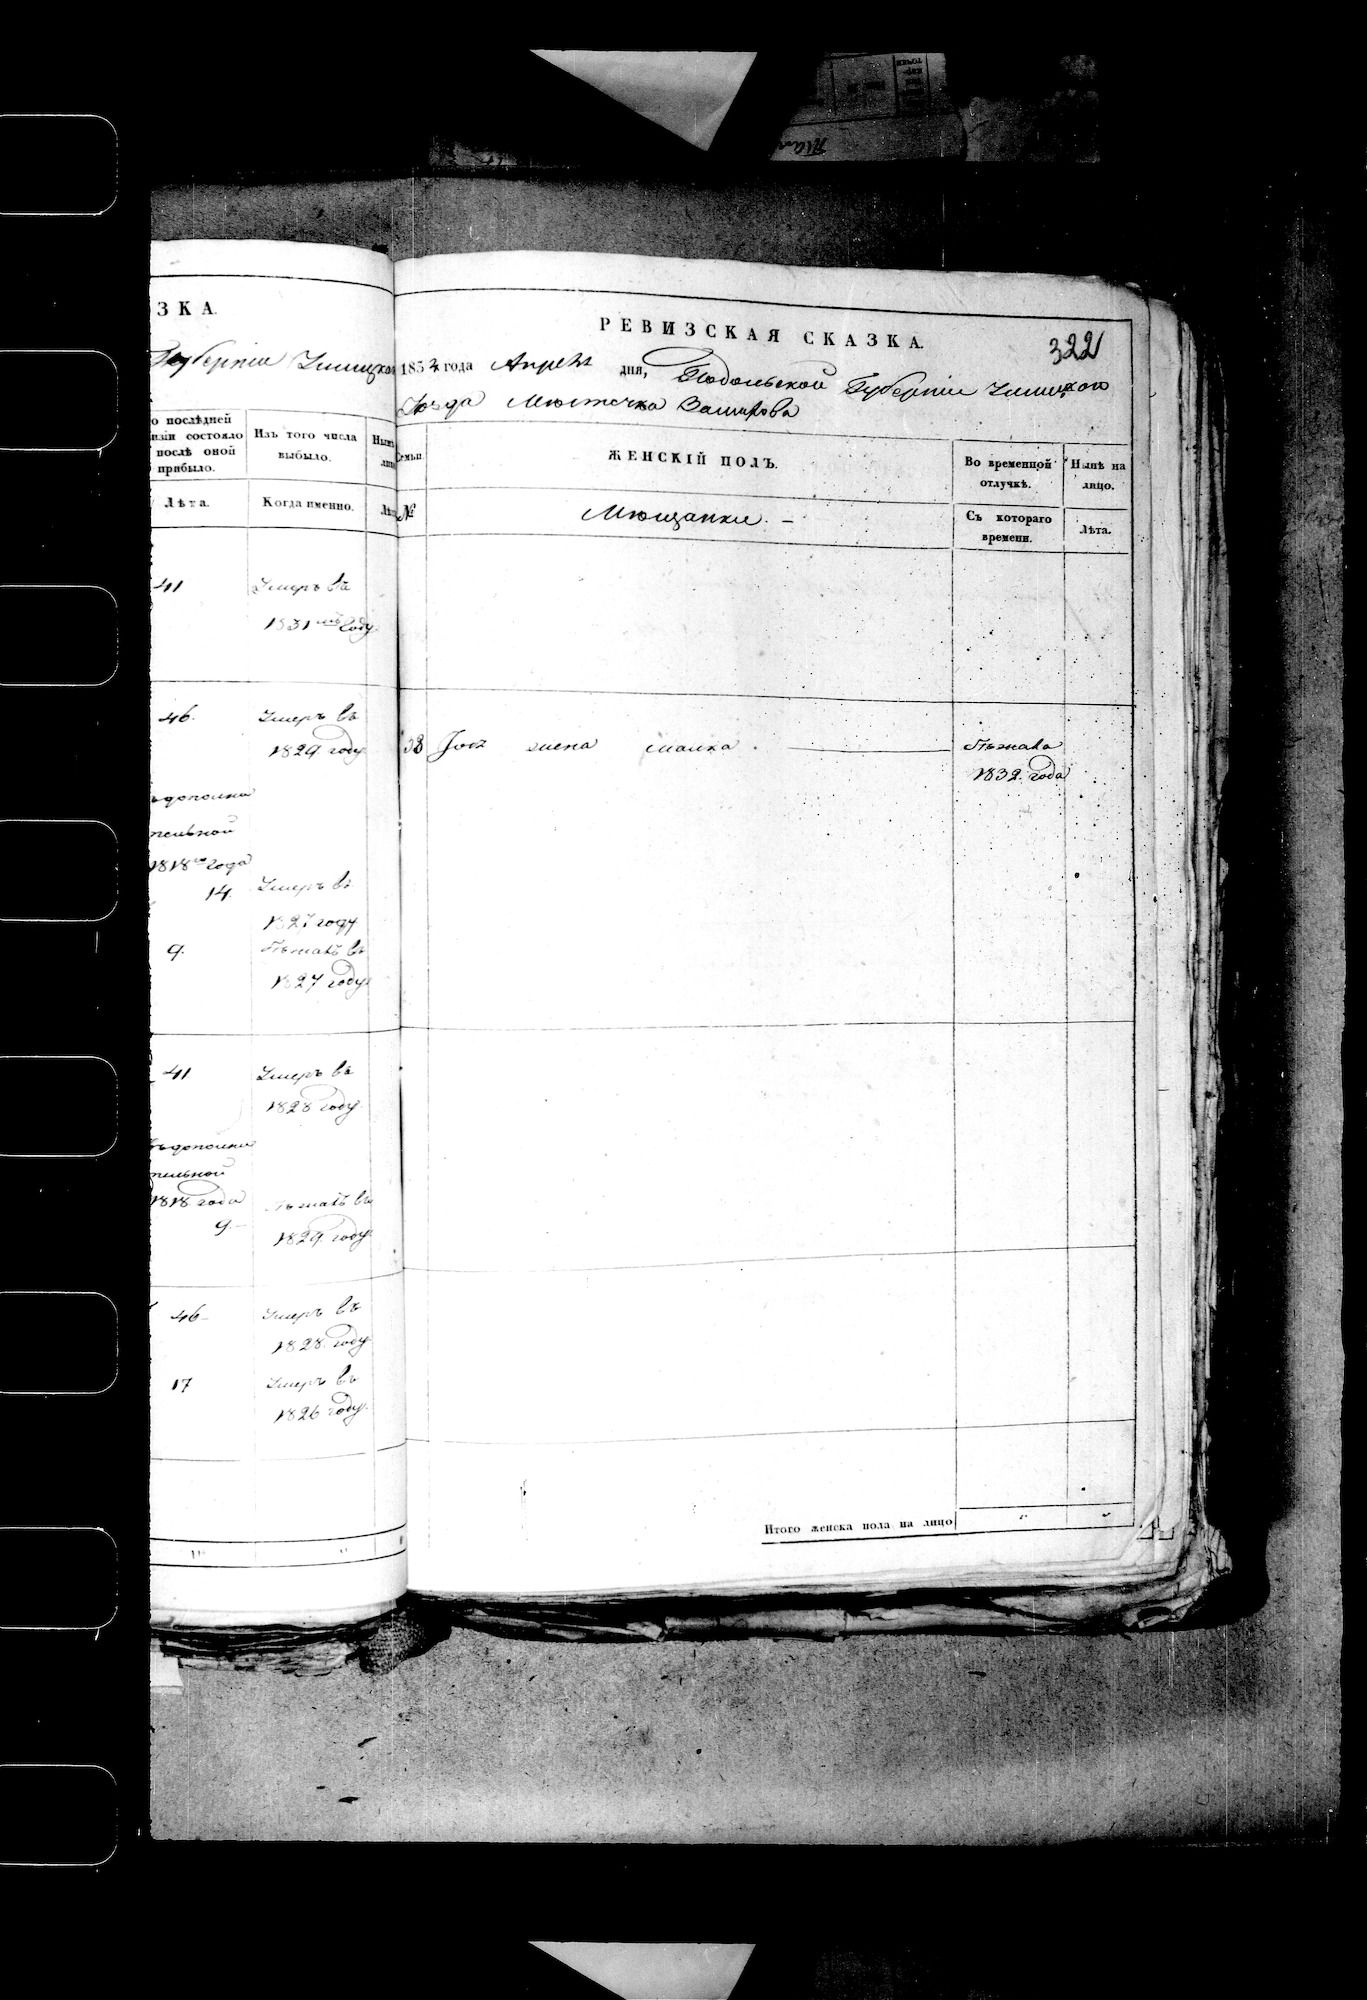 ЗКА.
Губерніи Ушицкой
о послѣдней
визіи состояло
послѣ оной
прибыло.
Изъ того числа
выбыло.
Лѣта.
Когда именно.
41
Умеръ въ
1831 году
46.
Умеръ въ
1829 году
дополни
тельной
1818 года
14.
Умеръ въ
1827 году
9.
Бѣжалъ въ
1827 году
41
Умеръ въ
1828 году
дополни
тельной
1818 года
9.
Бѣжалъ въ
1829 году
46
Умеръ въ
1828 году
17
Умеръ въ
1826 году.
РЕВИЗСКАЯ СКАЗКА.
322
185 года Апрѣля дня, Подольской Губерніи Ушицкой
Уѣзда Мѣстечка
Семьи.
ЖЕНСКІЙ ПОЛЪ.
Во временной
отлучкѣ.
Нынѣ на
лицо.
№
Мѣщанки. -
Съ котораго
времени.
Лѣта.
жена малка.
Бѣжала
1832. года
Итого женска пола на лицо